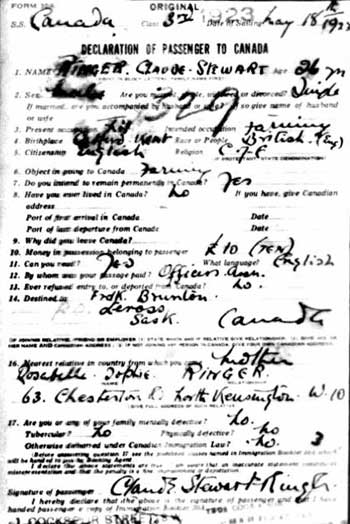 FORM 30A ORIGINAL 1923
S.S. Canada Class 3rd Date of Sailing May 18th 1923
DECLARATION OF PASSENGER TO CANADA
1. NAME RINGER. CLAUDE-STEWART Age 26 yrs
2. Sex Are you married, single, widowed or divorced? Single
If married, are you accompanied by husband or wife? If so give name of husband
or wife
3. Present occupation Intended occupation farming
4. Birthplace Kent Race or People British (Eng)
5. Citizenship English Religion C of E
6. Object in going to Canada farming
7. Do you intend to remain permanently in Canada? Yes
8. Have you ever lived in Canada? No If you have, give Canadian
address
Port of first arrival in Canada Date
Port of last departure from Canada Date
9. Why did you leave Canada?
10. Money in possession belonging to passenger £10 (TEN)
11. Can you read? Yes What language? English
12. By whom was your passage paid? Officers Assn.
13. Ever refused entry to, or deported from Canada? No.
14. Destined to Fredk. Brunton
Leross
Sask. Canada
16. Nearest relative in country from which you came Mother
Rosabelle Sophie RINGER.
63. Chesterton Rd North Kensington W.10
17. Are you or any of your family mentally defective? No.
Tubercular? No Physically defective? No.
Otherwise debarred under Canadian Immigration Law? No. 3
Signature of passenger Claude Stewart Ringer
I hereby declare that the above is the signature of passenger and that I have
handed passenger a copy of Immigration Booklet